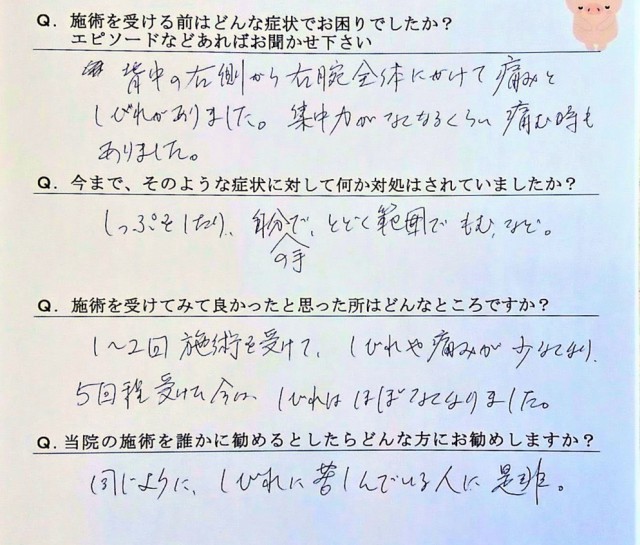 Q．施術を受ける前はどんな症状でお困りでしたか？
エピソードなどあればお聞かせ下さい
背中の右側から右腕全体にかけて痛みと
しびれがありました。集中力がなくなるくらい痛む時も
ありました。
Q．今まで、そのような症状に対して何か対処はされていましたか？
しっぷをしたり、自分で、とどく範囲でもむ、など。
の手
Q．施術を受けてみて良かったと思った所はどんなところですか？
1〜2回施術を受けて、しびれや痛みが少なくなり、
5回程受けた今は、しびれはほぼなくなりました。
Q．当院の施術を誰かに勧めるとしたらどんな方にお勧めしますか？
同じように、しびれに苦しんでいる人に是非。